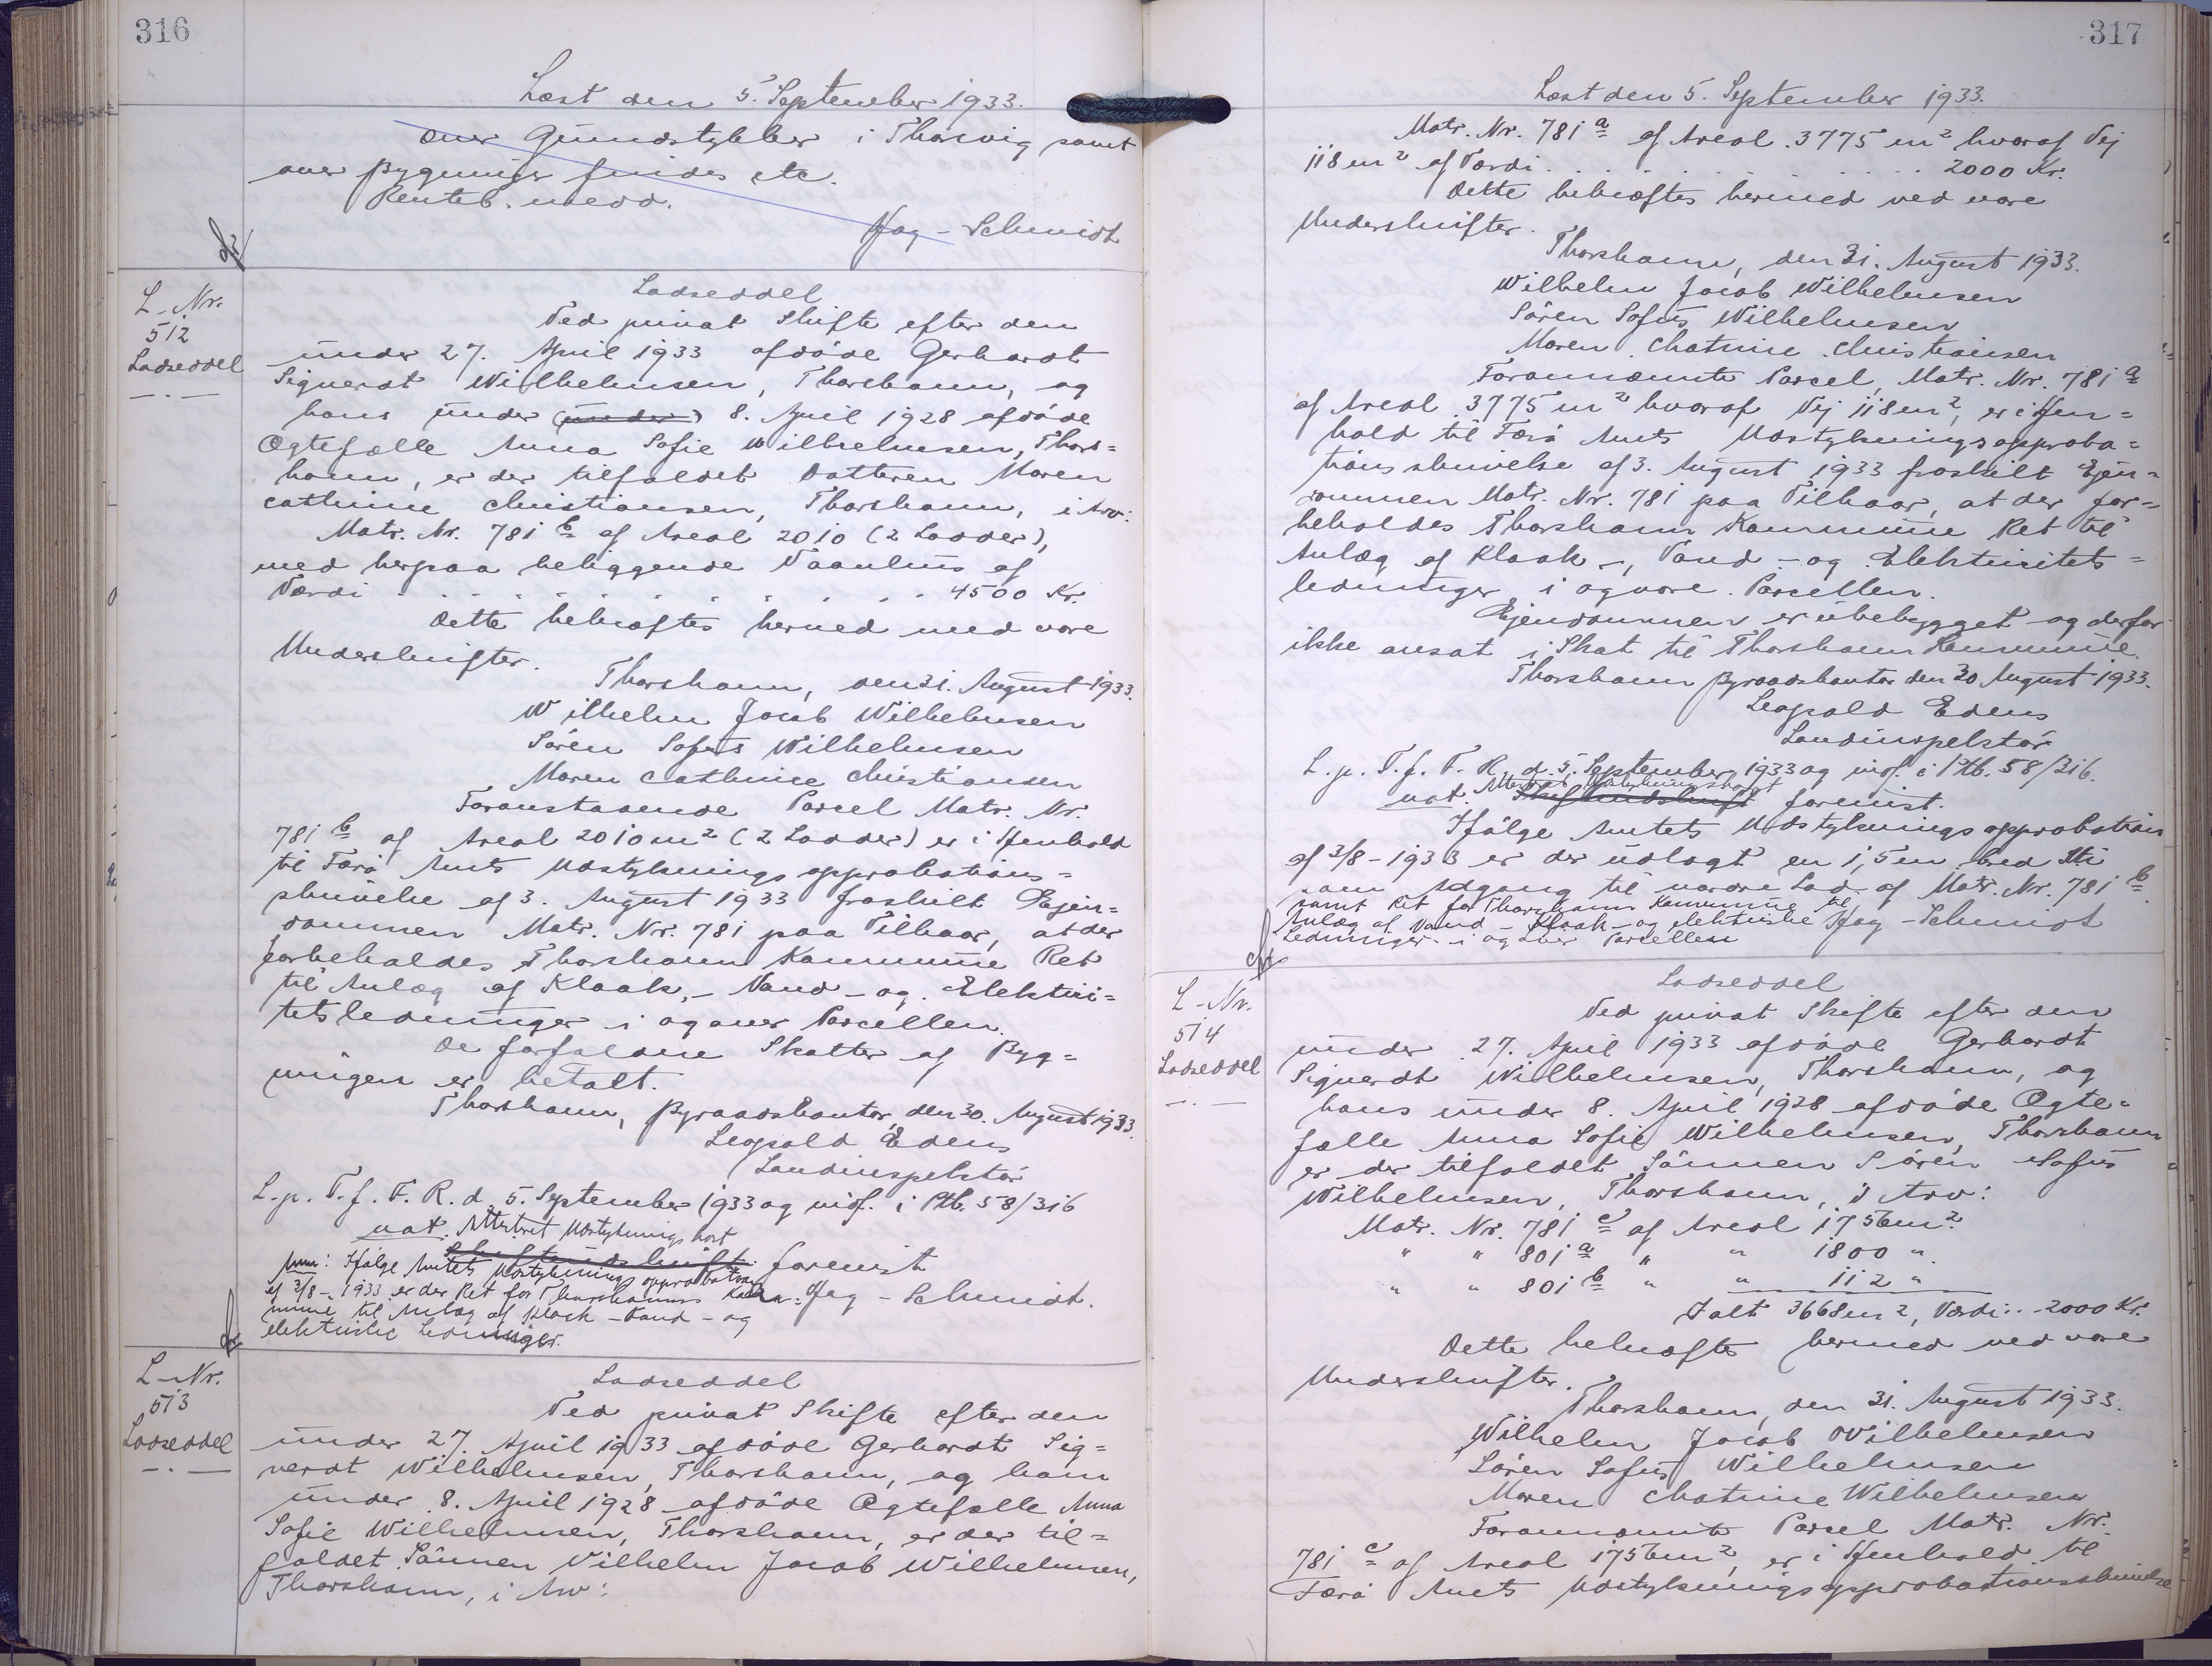 316
Læst den 5. September 1933.
over Grundstykker i Thorsvig samt
over Bygninger findes etc.
Renteb. medd.
Hag-Schmidt
L-Nr.
512
Lodseddel
Lodseddel
Ved privat Skifte efter den
under 27. April 1933 afdöde Gerhardt
Siguerdt Wilhelmsen, Thorshavn, og
hans under (under) 8. April 1928 afdöde
Ægtefælle Anna Sofie Wilhelmsen, Thors=
havn, er der tilfaldet Datteren Maren
Cathrine Christiansen, Thorshavn, i Arv:
Matr. Nr. 781 b af Areal 2010 (2 Lodder),
med herpaa beliggende Vaanhus af
Værdi . . . . . . . . . . 4500 Kr.
Dette bekræftes herved med vore
Underskrifter.
Thorshavn, den 31. August 1933.
Wilhelm Jacob Wilhelmsen
Sören Sofus Wilhelmsen
Maren Cathrine Christiansen
Foranstaaende Parcel Matr. Nr.
781 b af Areal 2010 m² (2 Lodder) er i Henhold
til Færö Amts Udstykningsapprobations=
skrivelse af 3. August 1933 fraskilt Ejen=
dommen Matr. Nr. 781 paa Vilkaar, at der
forbeholdes Thorshavn Kommune Ret
til Anlæg af Kloak,- Vand- og Elektrici=
tetsledninger i og over Parcellen.
De forfaldne Skatter af Byg=
ningen er betalt.
Thorshavn, Byraadskontor, den 30. August 1933.
Leopold Edens
Landinspektör
L. p. T. f. F. R. d. 5. September 1933 og indf. i Ptb. 58/316
not. Attesteret Udstykningskort
Skiftendskrift forevist
Anm: Ifölge Amtets Udstykningsapprobation
af 3/8-1933 er der Ret for Thorshavns Kom=
mune til Anlæg af Kloak-Vand- og
elektriske Ledninger.
Hag-Schmidt.
L-Nr.
513
Lodseddel
Lodseddel
Ved privat Skifte efter den
under 27. April 1933 afdöde Gerhardt Sig=
verdt Wilhelmsen, Thorshavn, og hans
under 8. April 1928 afdöde Ægtefælle Anna
Sofie Wilhelmsen, Thorshavn, er der til=
faldet Sönnen Vilhelm Jacob Wilhelmsen,
Thorshavn, i Arv:
317
Læst den 5. September 1933.
Matr. Nr. 781 a af Areal 3775 m² hvoraf Vej
118 m² af Værdi . . . . . . . . . . 2000 Kr.
Dette bekræftes herved ved vore
Underskrifter.
Thorshavn, den 31. August 1933.
Wilhelm Jacob Wilhelmsen
Sören Sofus Wilhelmsen
Maren Chatrine Christiansen
Forannævnte Parcel, Matr. Nr. 781 a
af Areal 3775 m² hvoraf Vej 118 m², er i Hen=
hold til Færö Amts Udstykningsapproba=
tionsskrivelse af 3. August 1933 fraskilt Ejen=
dommen Matr. Nr. 781 paa Vilkaar, at der for=
beholdes Thorshavn Kommune Ret til
Anlæg af Kloak-, Vand- og Elektricitets=
ledninger i og over Parcellen.
Ejendommen er ubebygget og derfor
ikke ansat i Skat til Thorshavn Kommune.
Thorshavn Byraadskontor den 30 August 1933.
Leopold Edens
Landinspektör
L. p. T. f. F. R. d. 5. September 1933 og indf. i Ptb. 58/316.
not. Attesteret Udstykningskort
Skiftendskrift forevist.
Ifölge Amtets Udstykningsapprobation
af 3/8-1933 er der udlagt en 1,5 m bred Sti
som Adgang til nordre Lod af Matr. Nr. 781 b
samt Ret for Thorshavns Kommune til
Anlæg af Vand-Kloak- og elektriske
Ledninger i og over Parcellen
Hag-Schmidt
L-Nr.
514
Lodseddel
Lodseddel
Ved privat Skifte efter den
under 27. April 1933 afdöde Gerhardt
Siguerdt Wilhelmsen, Thorshavn, og
hans under 8. April 1928 afdöde Ægte=
fælle Anna Sofie Wilhelmsen, Thorshavn
er der tilfaldet Sönnen Sören Sofus
Wilhelmsen, Thorshavn, i Arv:
Matr. Nr. 781 c af Areal 1756 m²
" " 801 a " " 1800 "
" " 801 b " " 112 "
Ialt 3668 m², Værdi . . 2000 Kr.
Dette bekræftes hermed ved vore
Underskrifter.
Thorshavn, den 31. August 1933.
Wilhelm Jacob Wilhelmsen
Sören Sofus Wilhelmsen
Maren Chatrine Wilhelmsen
Forannævnte Parcel Matr. Nr.
781 c af Areal 1756 m², er i Henhold til
Færö Amts Udstykningsapprobationsskrivelse